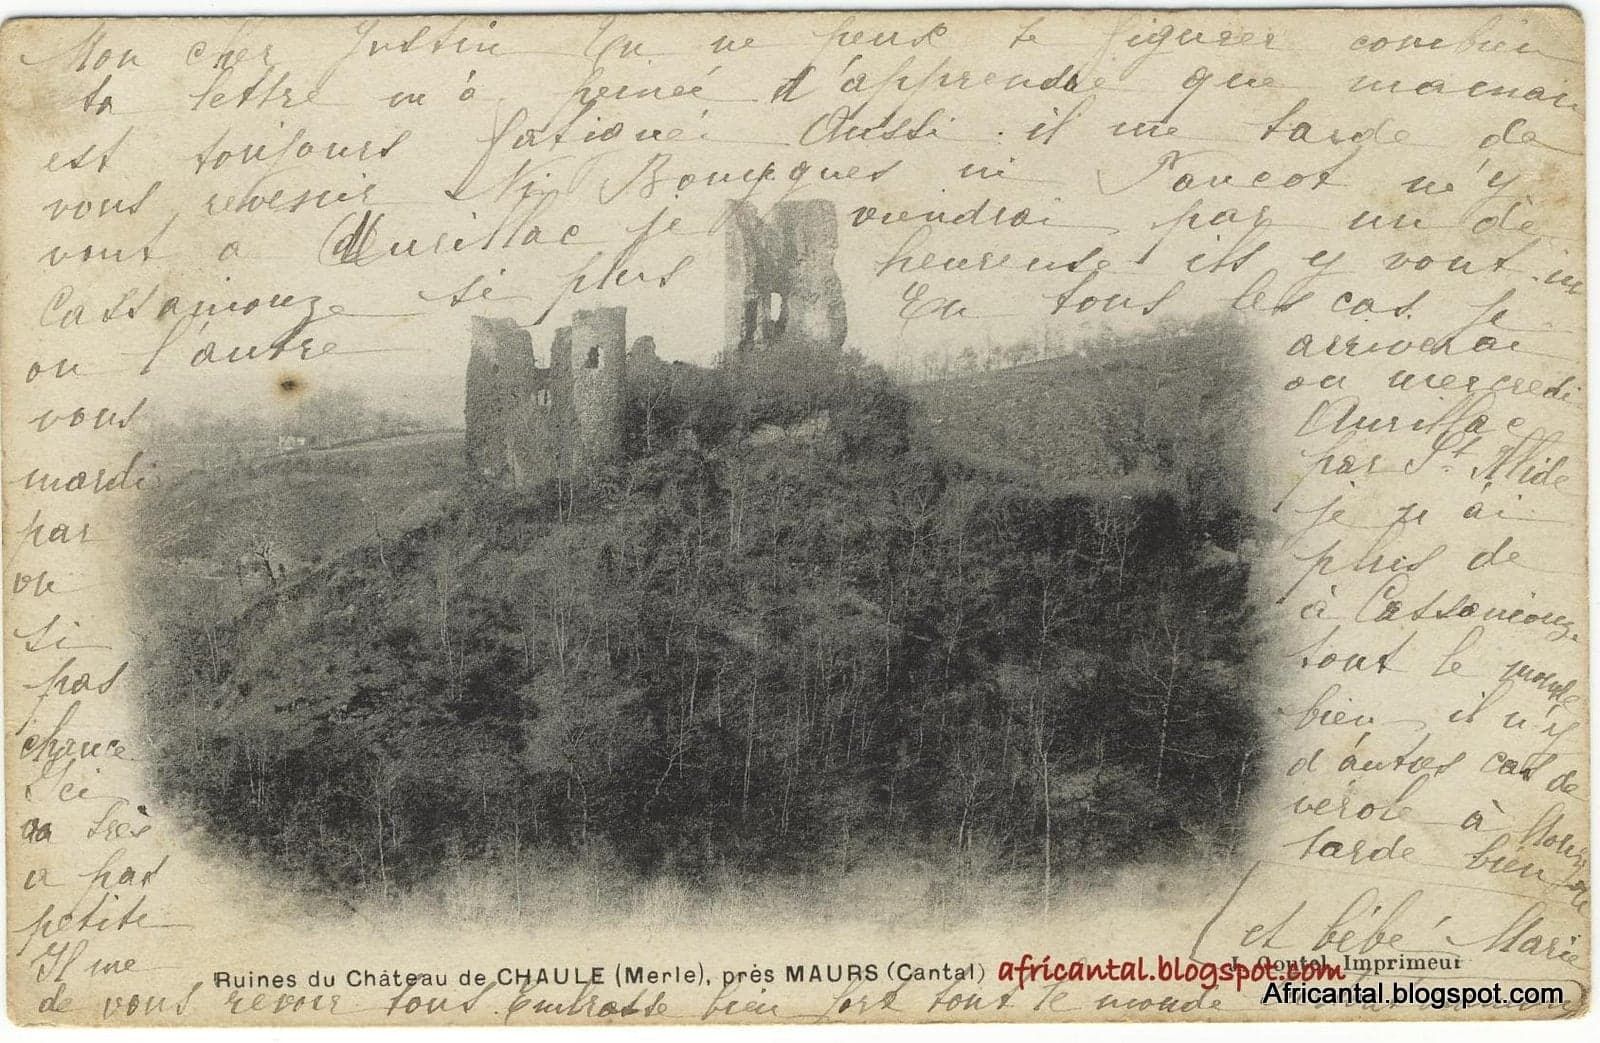 Mon cher Justin Tu ne peux te figurer combien
ta lettre m'a peinée d'apprendre que maman
est toujours fatiguée Aussi il me tarde de
vous revenir Ni ni Pancot n'y
vont a Aurillac je viendrai par un de
Cassaniouze si plus heureuse ils y vont
ou l'autre En tous les cas je
vous arriverai
mardi ou mercredi
par Aurillac
ou par St Mide
si je n'ai
pas plus de
chance à Cassaniouze
Ici tout le monde
va très bien il n'y
a pas d'autres cas de
petite verole à
Il me tarde bien
de vous revoir tous Embrasse bien fort tout le monde
et bébé Marie
Ruines du Château de CHAULE (Merle), près MAURS (Cantal)
Imprimeur
africantal.blogspot.com
Africantal.blogspot.com